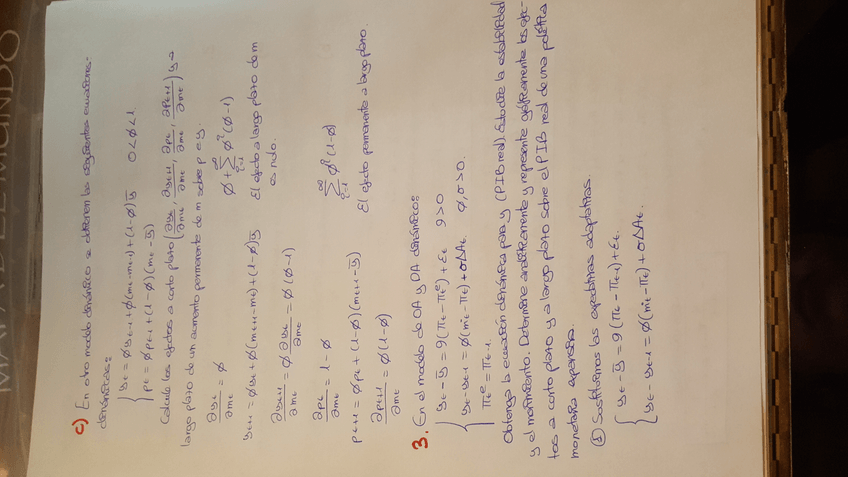 MAPA DEL MUNDO
c) En otro modelo dinámico se obtienen las siguientes ecuaciones
dinámicas:
{ yt = φyt-1 + φ(mt - mt-1) + (1-φ)ȳ 0<φ<1
pt = φpt-1 + (1-φ)(mt - ȳ)
Calcule los efectos a corto plazo (∂yt/∂mt, ∂yt+1/∂mt, ∂pt/∂mt, ∂pt+1/∂mt) y a
largo plazo de un aumento permanente de m sobre p e y.
∂yt/∂mt = φ
φ + ∑ φ^i (φ-1)
yt+1 = φyt + φ(mt+1 - mt) + (1-φ)ȳ
El efecto a largo plazo de m
es nulo.
∂yt+1/∂mt = φ ∂yt/∂mt = φ(φ-1)
∂pt/∂mt = 1-φ
∑ φ^i (1-φ)
pt+1 = φpt + (1-φ)(mt+1 - ȳ)
El efecto permanente a largo plazo.
∂pt+1/∂mt = φ(1-φ)
3. En el modelo de OA y DA dinámico:
{ yt - ȳ = g(πt - πt^e) + εt g>0
yt - yt-1 = φ(ṁt - πt) + σΔAt φ,σ>0.
πt^e = πt-1
Obtenga la ecuación dinámica para y (PIB real). Estudie la estabilidad
y el movimiento. Determine analíticamente y represente gráficamente los efec-
tos a corto plazo y a largo plazo sobre el PIB real de una política
monetaria expansiva.
① Sustituimos las expectativas adaptativas.
{ yt - ȳ = g(πt - πt-1) + εt.
yt - yt-1 = φ(ṁt - πt) + σΔAt.